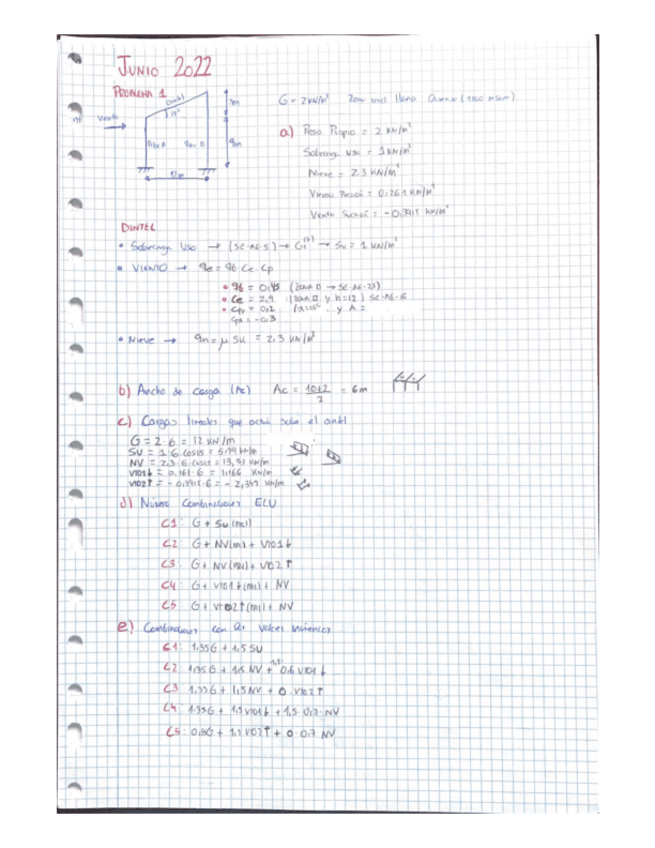 JUNIO 2022
PROBLEMA 1
Dintel
15°
3m
Viento
9m
12m
G = 2 kN/m²
a) Peso Propio = 2 kN/m²
Sobrecarga uso = 1 kN/m²
Nieve = 2.3 kN/m²
Viento Presió = 0.261 kN/m²
Viento Succió = -0.3915 kN/m²
DINTEL
• Sobrecarga Uso → (SE-AE-5) → G1 → Su = 1 kN/m²
• VIENTO → qe = qb Ce · Cp
• qb = 0,45 (ZONA → SE-AE-23)
• Ce = 2,9 (ZONA y h=12) SE-AE-8
• Cp = 0,2 y A =
Cp = -0,3
• Nieve → qn = μ Sk = 2,3 kN/m²
b) Ancho de carga (Ac) Ac = = 6m
2
c) Cargas lineales que actúa sobre el dintel
G = 2 · 6 = 12 kN/m
SU = 1 · 6 cos15 = 5,79 kN/m
NV = 2,3 · 6 cos15 = 13,33 kN/m
VTO1↓ = 0,261 · 6 = 1,566 kN/m
VTO2↑ = -0,3915 · 6 = -2,349 kN/m
d) Número Combinaciones ELU
C1: G + Su (ppal)
C2: G + NV(ppal) + VTO1↓
C3: G + NV(ppal) + VTO2↑
C4: G + VTO1↓(ppal) + NV
C5: G + VTO2↑(ppal) + NV
e) Combinaciones con valores numéricos
C1: 1,35G + 1,5 SU
C2: 1,35G + 1,5 NV + 1,5 0,6 VTO1↓
C3: 1,35G + 1,5NV + 0 · VTO2↑
C4: 1,35G + 1,5 VTO1↓ + 1,5 · 0,7 · NV
C5: 0,8G + 1,5 VTO2↑ + 0 · 0,7 NV